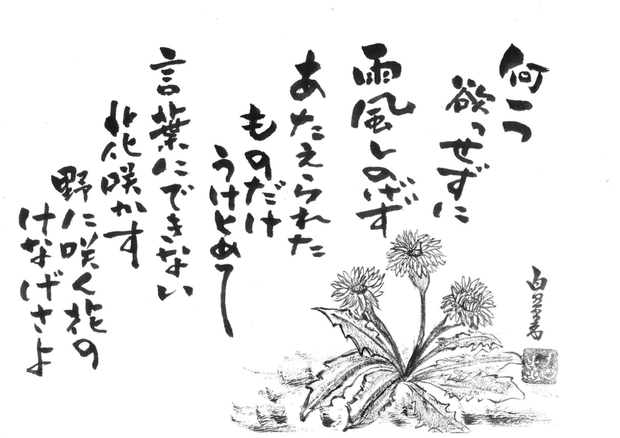 何一つ
欲っせずに
雨風しのげず
あたえられた
ものだけ
うけとめて
言葉にできない
花咲かす
野に咲く花の
けなげさよ